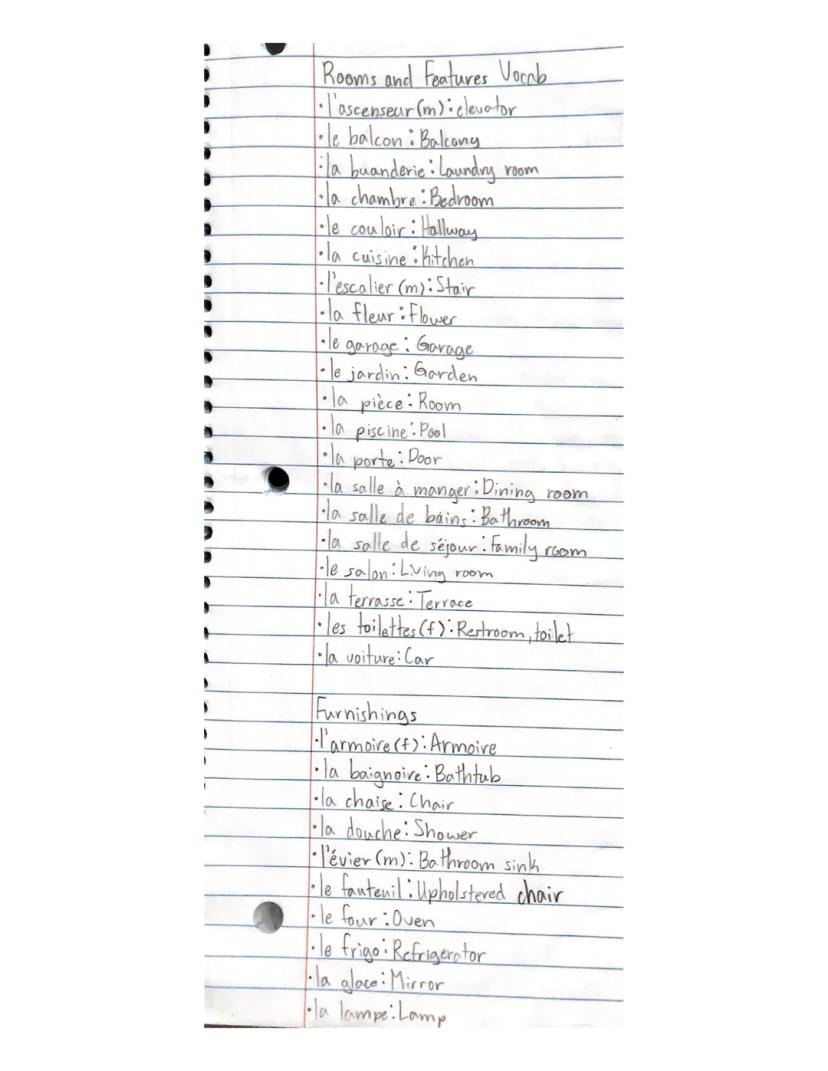 Rooms and Features Vocab
·l'ascenseur (m): elevator
·le balcon: Balcony
·la buanderie: Laundry room
·la chambre: Bedroom
·le couloir: Hallway
·la cuisine: Kitchen
·l'escalier (m): Stair
·la fleur: Flower
·le garage: Garage
·le jardin: Garden
·la pièce: Room
·la piscine: Pool
·la porte: Door
·la salle à manger: Dining room
·la salle de bains: Bathroom
·la salle de séjour: Family room
·le salon: Living room
·la terrasse: Terrace
·les toilettes (f): Restroom, toilet
·la voiture: Car
Furnishings
·l'armoire (f): Armoire
·la baignoire: Bathtub
·la chaise: Chair
·la douche: Shower
·l'évier (m): Bathroom sink
·le fauteuil: Upholstered chair
·le four: Oven
·le frigo: Refrigerator
·la glace: Mirror
·la lampe: Lamp